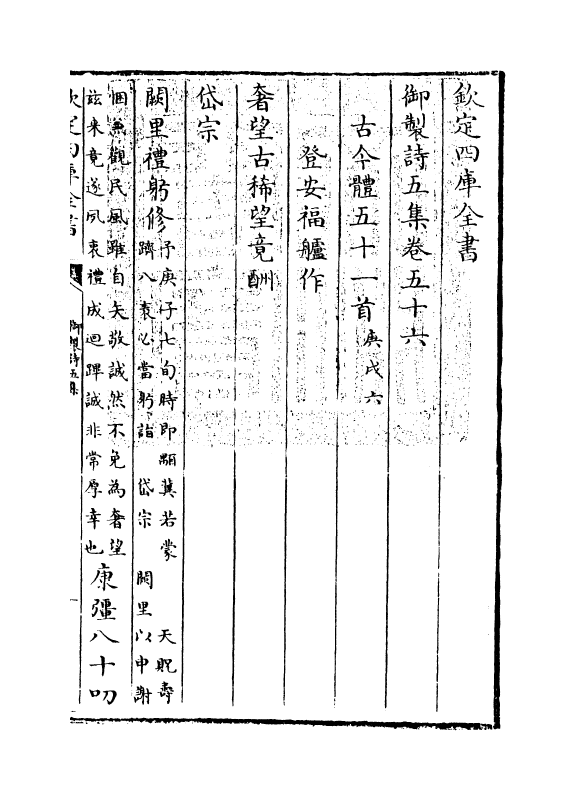 欽定四庫全書
御製詩五集卷五十六
古今體五十一首庚戌六
登安福艫作
奢望古稀望竟酬
岱宗
闕里禮躬修予庚子七旬時即顒冀若蒙 天貺壽
躋八袠必當躬詣 岱宗 闕里以申謝
悃兼觀民風雖自矢敬誠然不免為奢望
茲来竟遂夙衷禮成迴蹕誠非常厚幸也康彊八十叨
欽定四庫全書
御製詩五集
一